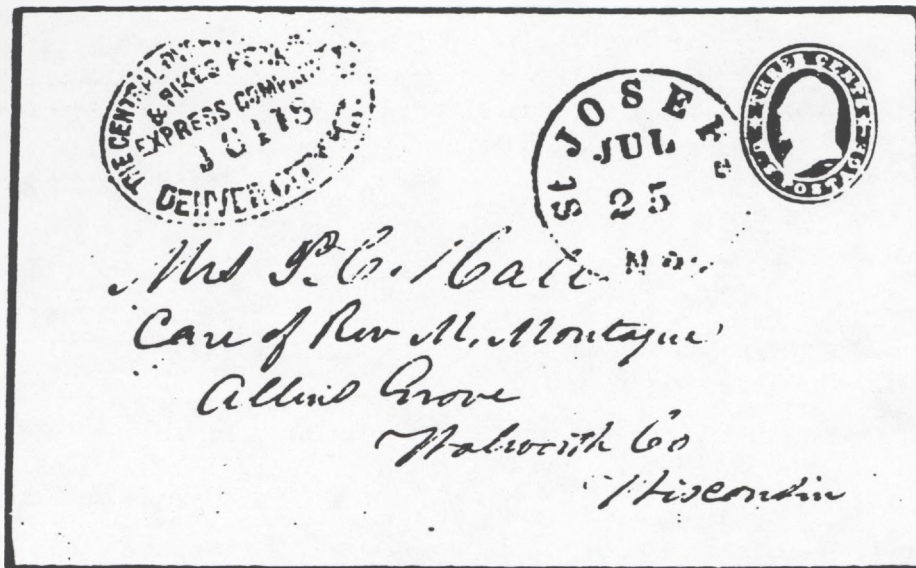 THE CENTRAL
& PIKES PEAK
EXPRESS COMPANY
DENVER CITY
St JOSEPH
JUL
25
Mo.
THREE CENTS
U.S. POSTAGE
Mrs P. C. Hall
Care of Rev M. Montague
Allens Grove
Walworth Co
Wisconsin